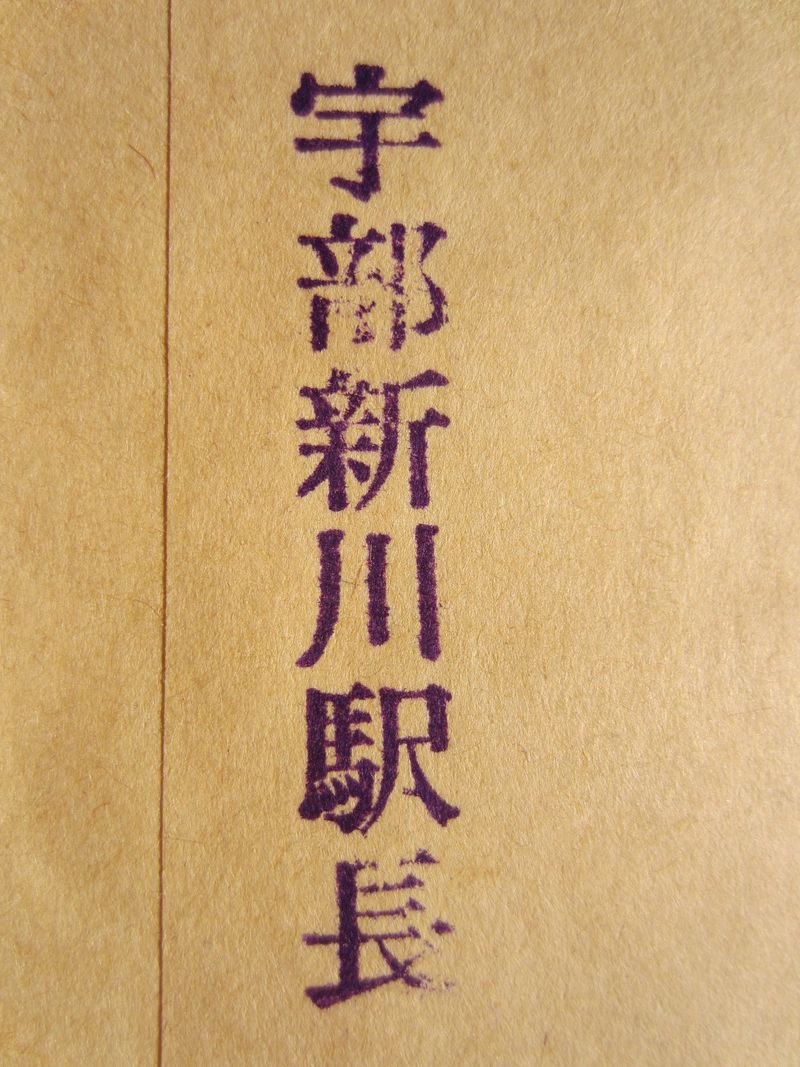 宇部新川駅長